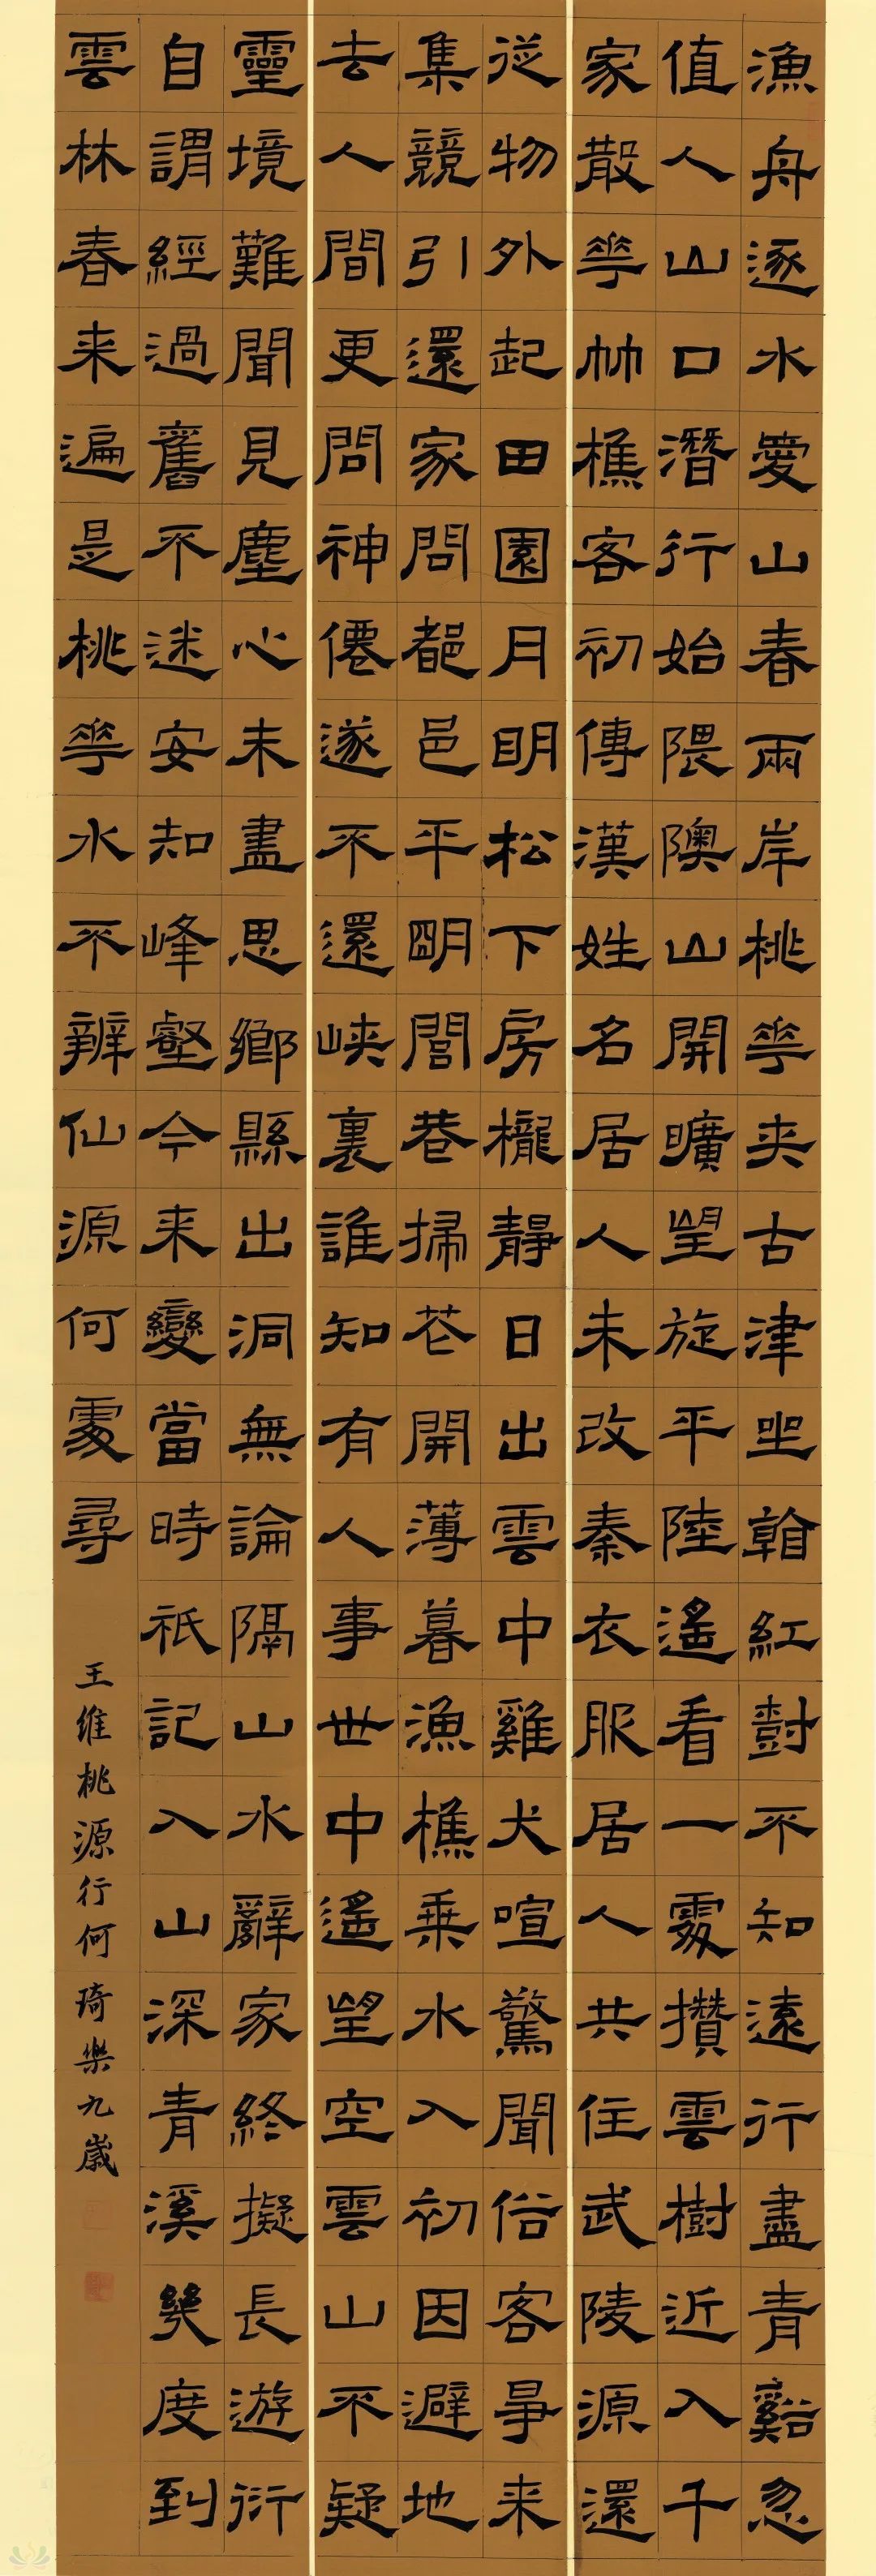 漁舟逐水愛山春兩岸桃華夾古津坐看紅尌不知遠行盡青谿忽
值人山口潛行始隈隩山開曠望旋平陸遙看一處攢雲樹近入千
家散華竹樵客初傳漢姓名居人未改秦衣服居人共住武陵源還
從物外起田園月明松下房櫳靜日出雲中雞犬喧驚聞俗客爭来
集競引還家問都邑平明閭巷掃花開薄暮漁樵乘水入初因避地
去人間更問神僊遂不還峽裏誰知有人事世中遙望空雲山不疑
靈境難聞見塵心未盡思鄉縣出洞無論隔山水辭家終擬長遊衍
自謂經過舊不迷安知峰壑今来變當時祇記入山深青溪幾度到
雲林春来遍是桃華水不辨仙源何處尋
王維桃源行何琦樂九歲